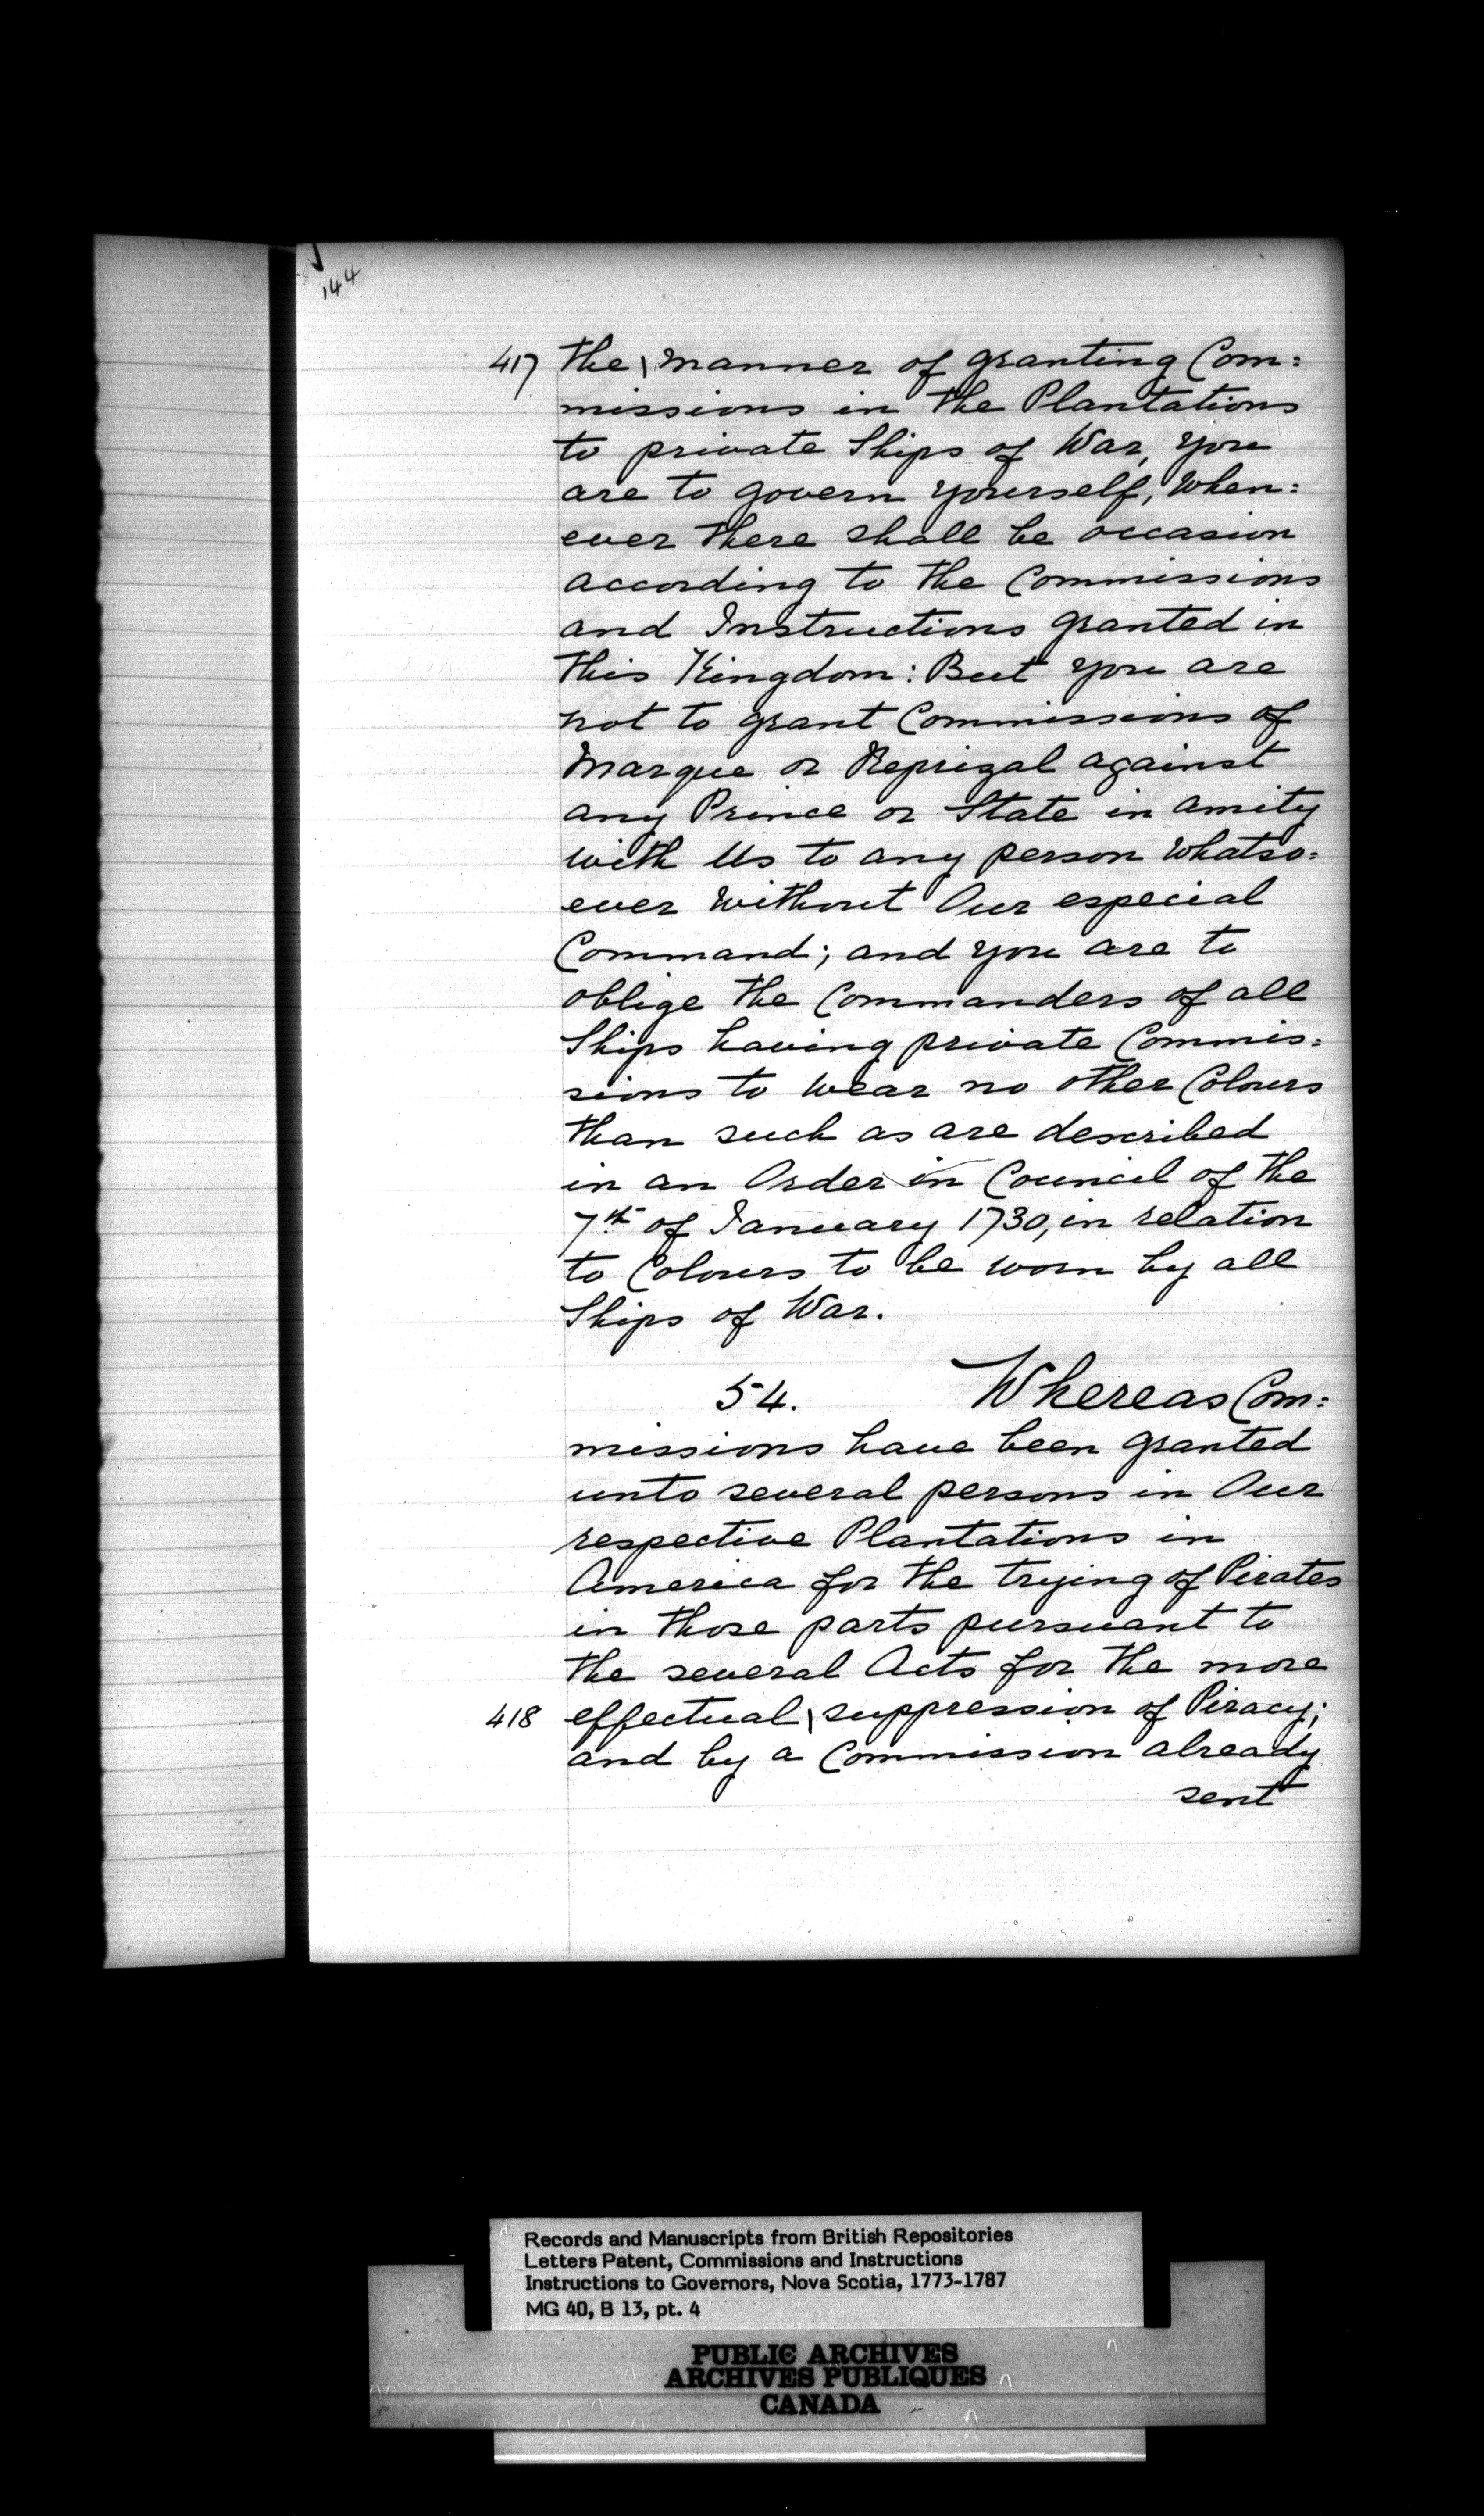 144
417 the \ manner of granting Com=
missions in the Plantations
to private Ships of War, you
are to govern yourself, when=
ever there shall be occasion
according to the Commissions
and Instructions granted in
this Kingdom: But you are
not to grant Commissions of
Marque or Reprizal against
any Prince or State in amity
with Us to any person whatso=
ever without Our especial
Command; and you are to
oblige the Commanders of all
Ships having private Commis=
sions to wear no other Colours
than such as are described
in an Order in Council of the
7th of January 1730, in relation
to Colours to be worn by all
Ships of War.
54. Whereas Com=
missions have been granted
unto several persons in Our
respective Plantations in
America for the trying of Pirates
in those parts pursuant to
the several Acts for the more
418 effectual \ suppression of Piracy;
and by a Commission already
sent
Records and Manuscripts from British Repositories
Letters Patent, Commissions and Instructions
Instructions to Governors, Nova Scotia, 1773-1787
MG 40, B 13, pt. 4
PUBLIC ARCHIVES
ARCHIVES PUBLIQUES
CANADA